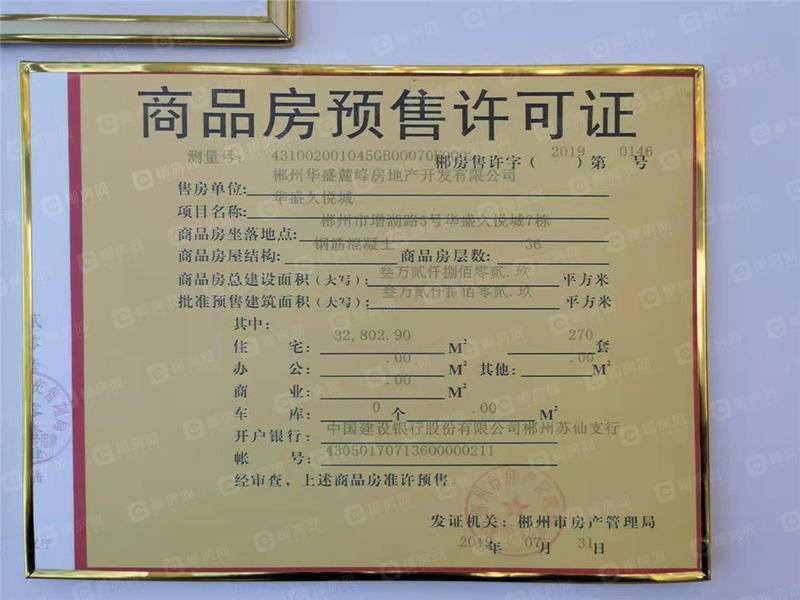 商品房预售许可证
测量号: 431002001045GB00070
郴房售许字(2019)第0146号
售房单位:郴州华盛麓峰房地产开发有限公司
项目名称:华盛久悦城
商品房坐落地点:郴州市增湖路5号华盛久悦城7栋
商品房屋结构:钢筋混凝土 商品房层数:36
商品房总建设面积(大写):叁万贰仟捌佰零贰.玖 平方米
批准预售建筑面积(大写):叁万贰仟捌佰零贰.玖 平方米
其中:
住 宅:32,802.90 M² 270 套
办 公:.00 M² 其他:.00 M²
商 业:.00 M²
车 库:0 个 .00 M²
开户银行:中国建设银行股份有限公司郴州苏仙支行
帐 号:43050170713600000211
经审查,上述商品房准许预售。
发证机关:郴州市房产管理局
2019年07月31日